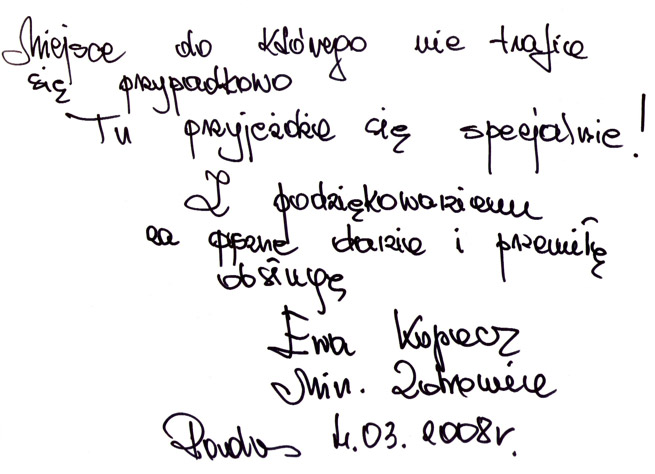 Miejsce do którego nie trafia
się przypadkowo
Tu przyjeżdża się specjalnie!
Z podziękowaniem
za pyszne danie i przemiłą
obsługę
Ewa Kopacz
Min. Zdrowia
4.03.2008r.